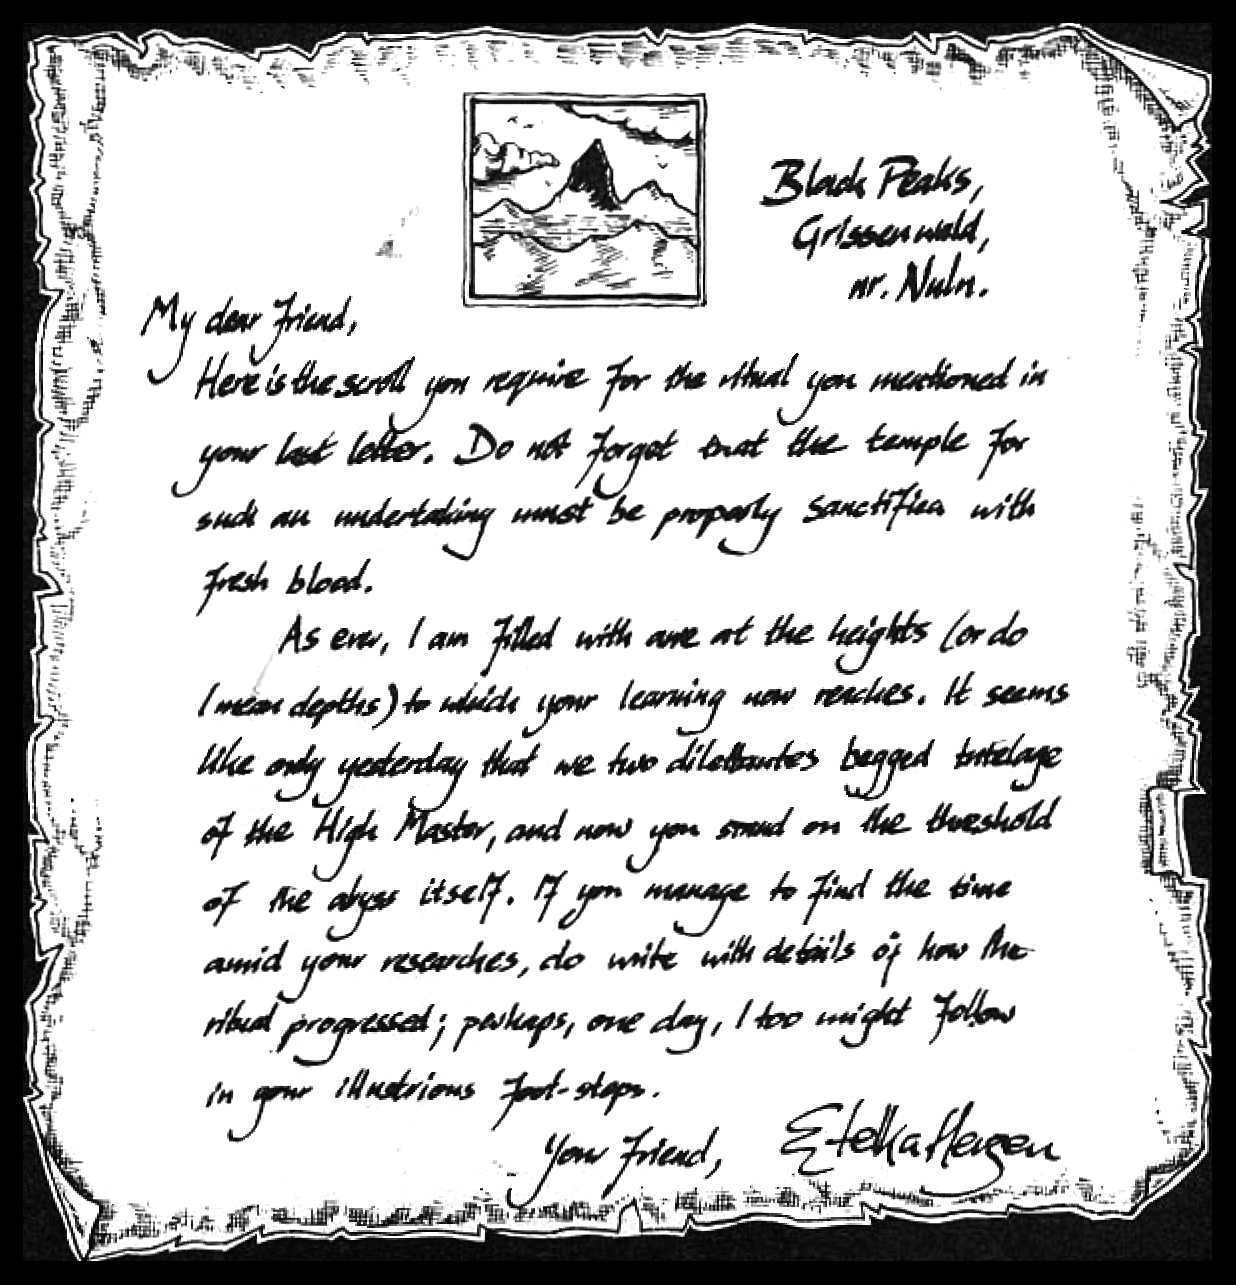 Black Peaks,
Grissenwald,
nr. Nuln.
My dear friend,
Here is the scroll you require for the ritual you mentioned in
your last letter. Do not forget that the temple for
such an undertaking must be properly sanctified with
fresh blood.
As ever, I am filled with awe at the heights (or do
I mean depths) to which your learning now reaches. It seems
like only yesterday that we two dilettantes begged tutelage
of the High Master, and now you stand on the threshold
of the abyss itself. If you manage to find the time
amid your researches, do write with details of how the
ritual progressed; perhaps, one day, I too might follow
in your illustrious foot-steps.
Your friend, Etelka Herzen